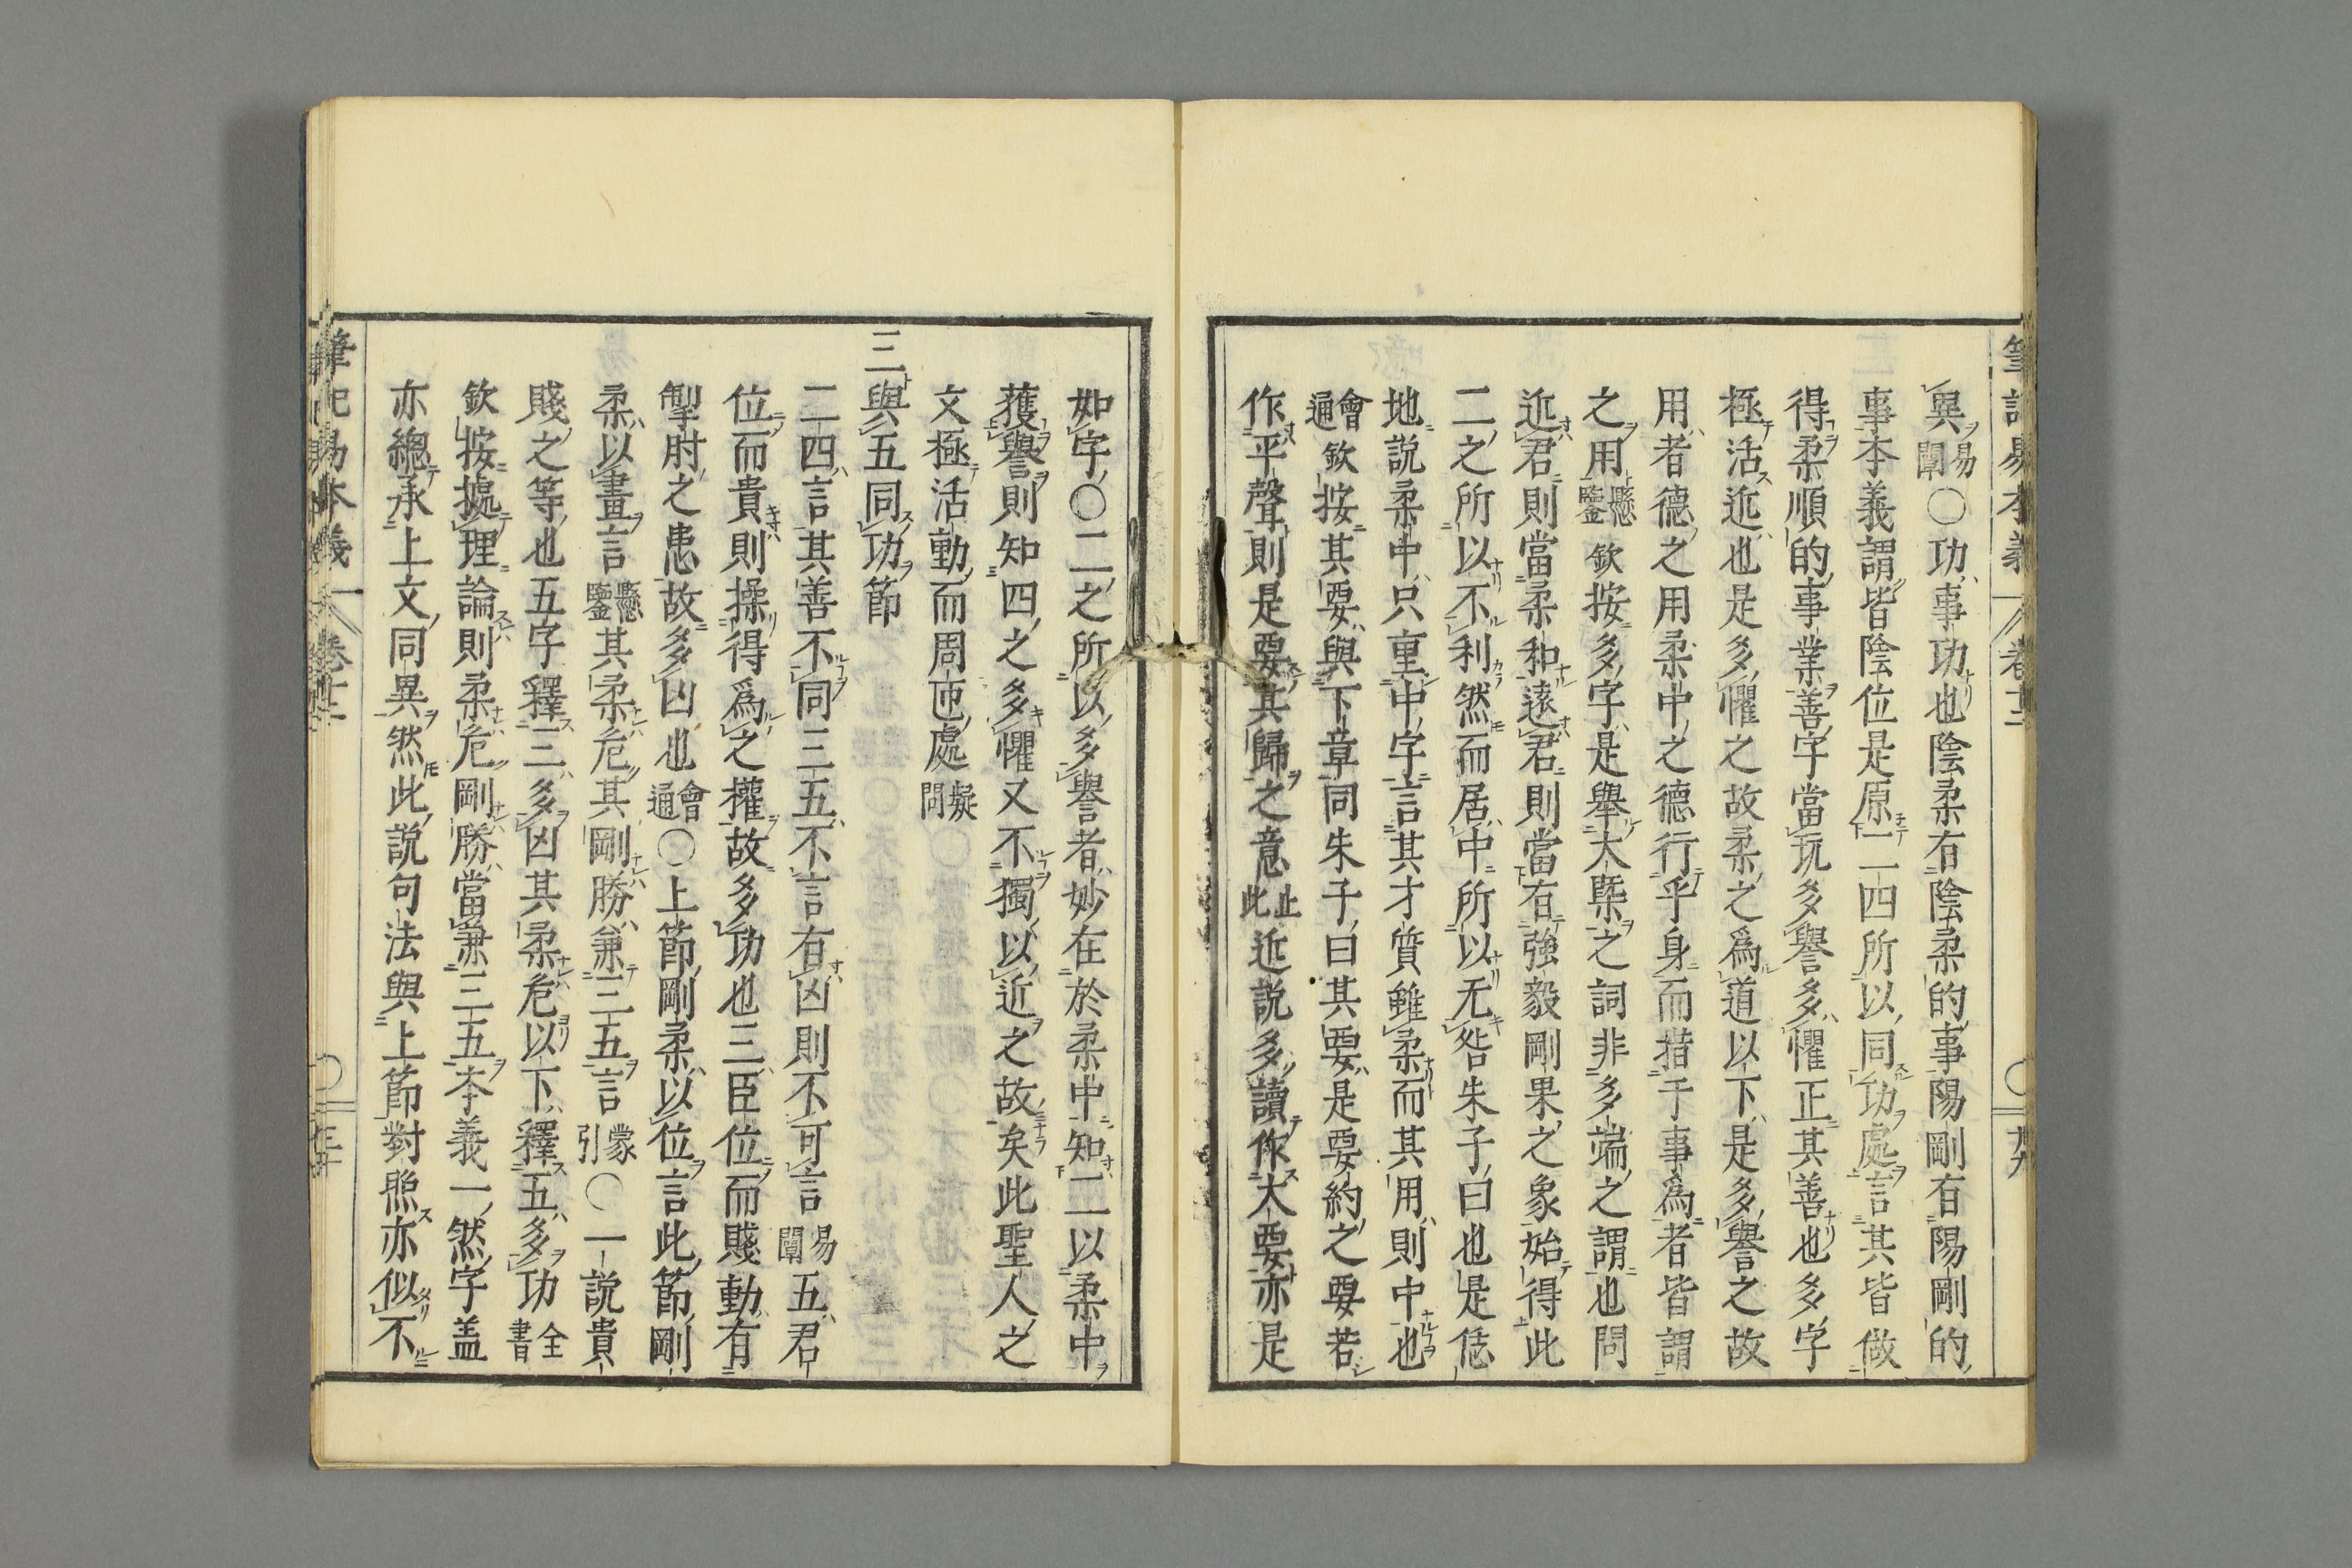 異易闡〇功事功也陰柔有陰柔的事陽剛有陽剛的
事本義謂皆陰位是原二四所以同功處言其皆做
得柔順的事業善字當玩多譽多懼正其善也多字
極活近也是多懼之故柔之爲道以下是多譽之故
用者德之用柔中之德行乎身而措于事爲者皆謂
之用懸鑒欽按多字是舉大槩之詞非多端之謂也問
近君則當柔和遠君則當有強毅剛果之象始得此
二之所以不利然而居中所以无咎朱子曰也是恁
地説柔中只重中字言其才質雖柔而其用則中也
會通欽按其要與下章同朱子曰其要是要約之要若
作平聲則是要其歸之意止此近説多讀作大要亦是
如字〇二之所以多譽者妙在於柔中知二以柔中
獲譽則知四之多懼又不獨以近之故矣此聖人之
文極活動而周匝處疑問
三與五同功節
二四言其善不同三五不言有凶則不可言易闡五君
位而貴則操得爲之權故多功也三臣位而賤動有
掣肘之患故多凶也會通〇上節剛柔以位言此節剛
柔以畫言懸鑒其柔危其剛勝兼三五言蒙引〇一説貴
賤之等也五字釋三多凶其柔危以下釋五多功全書
欽按據理論則柔危剛勝當兼三五本義一然字盖
亦總承上文同異然此説句法與上節對照亦似不